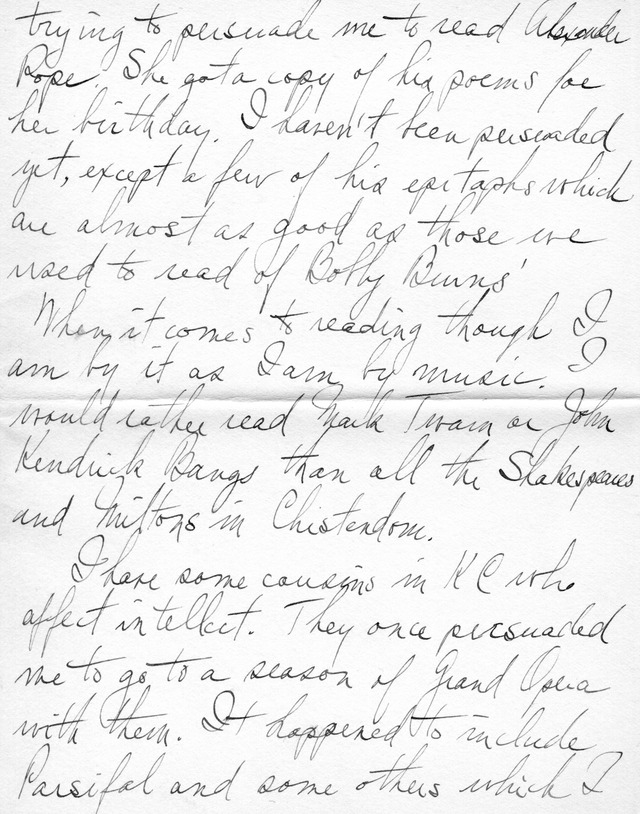 trying to persuade me to read Alexander
Pope. She got a copy of his poems for
her birthday. I haven't been persuaded
yet, except a few of his epitaphs which
are almost as good as those we
used to read of Bobby Burns'
When it comes to reading though I
am by it as I am by music. I
would rather read Mark Twain or John
Kendrick Bangs than all the Shakespeares
and Miltons in Chistendom.
I have some cousins in KC who
affect intellect. They once persuaded
me to go to a season of Grand Opera
with them. It happened to include
Parsifal and some others which I